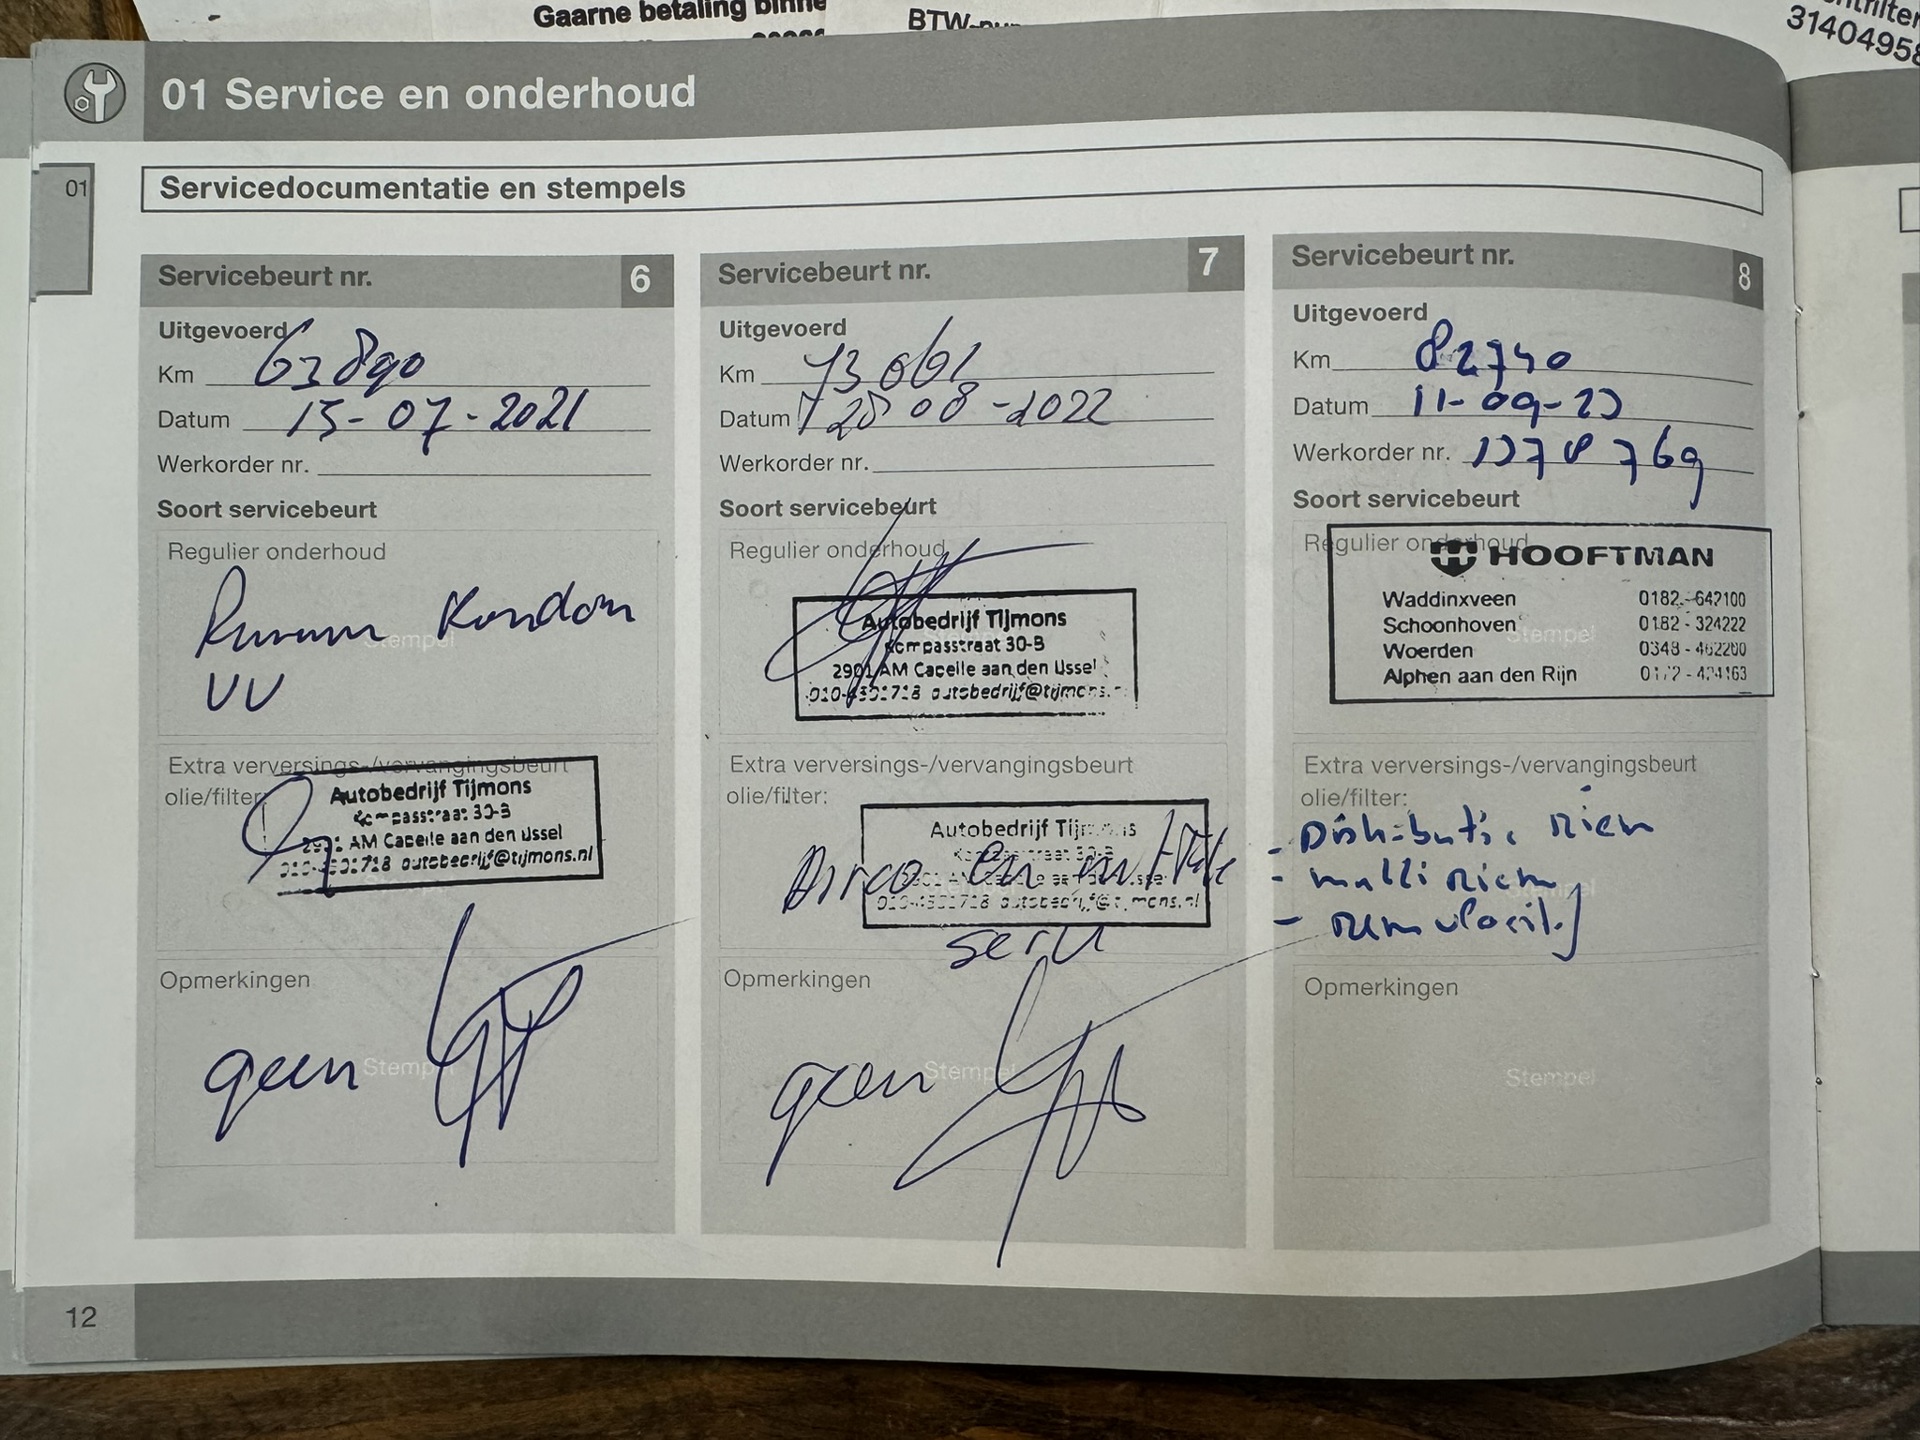 Gaarne betaling binne
BTW-nu
3140495
01 Service en onderhoud
01
Servicedocumentatie en stempels
Servicebeurt nr. 6
Uitgevoerd
Km 63890
Datum 15-07-2021
Werkorder nr.
Soort servicebeurt
Regulier onderhoud
rondom
Stempel
VV
Extra verversings-/vervangingsbeurt
olie/filter:
Autobedrijf Tijmons
Kompasstraat 30-B
2901 AM Capelle aan den IJssel
010-4501718 autobedrijf@tijmons.nl
Opmerkingen
geen
Stempel
Servicebeurt nr. 7
Uitgevoerd
Km 73061
Datum 08-2022
Werkorder nr.
Soort servicebeurt
Regulier onderhoud
Autobedrijf Tijmons
Kompasstraat 30-B
2901 AM Capelle aan den IJssel
autobedrijf@tijmons.n
Extra verversings-/vervangingsbeurt
olie/filter:
Autobedrijf Tijmons
Airco en
autobedrijf@tijmons.nl
Opmerkingen
geen
Stempel
Servicebeurt nr. 8
Uitgevoerd
Km 82740
Datum 11-09-23
Werkorder nr.
Soort servicebeurt
Regulier onderhoud
HOOFTMAN
Waddinxveen 0182 - 642100
Schoonhoven 0182 - 324222
Stempel
Woerden 0348 - 462200
Alphen aan den Rijn
Extra verversings-/vervangingsbeurt
olie/filter:
- Distributie riem
- multi riem
- remvloeist.
Opmerkingen
Stempel
12